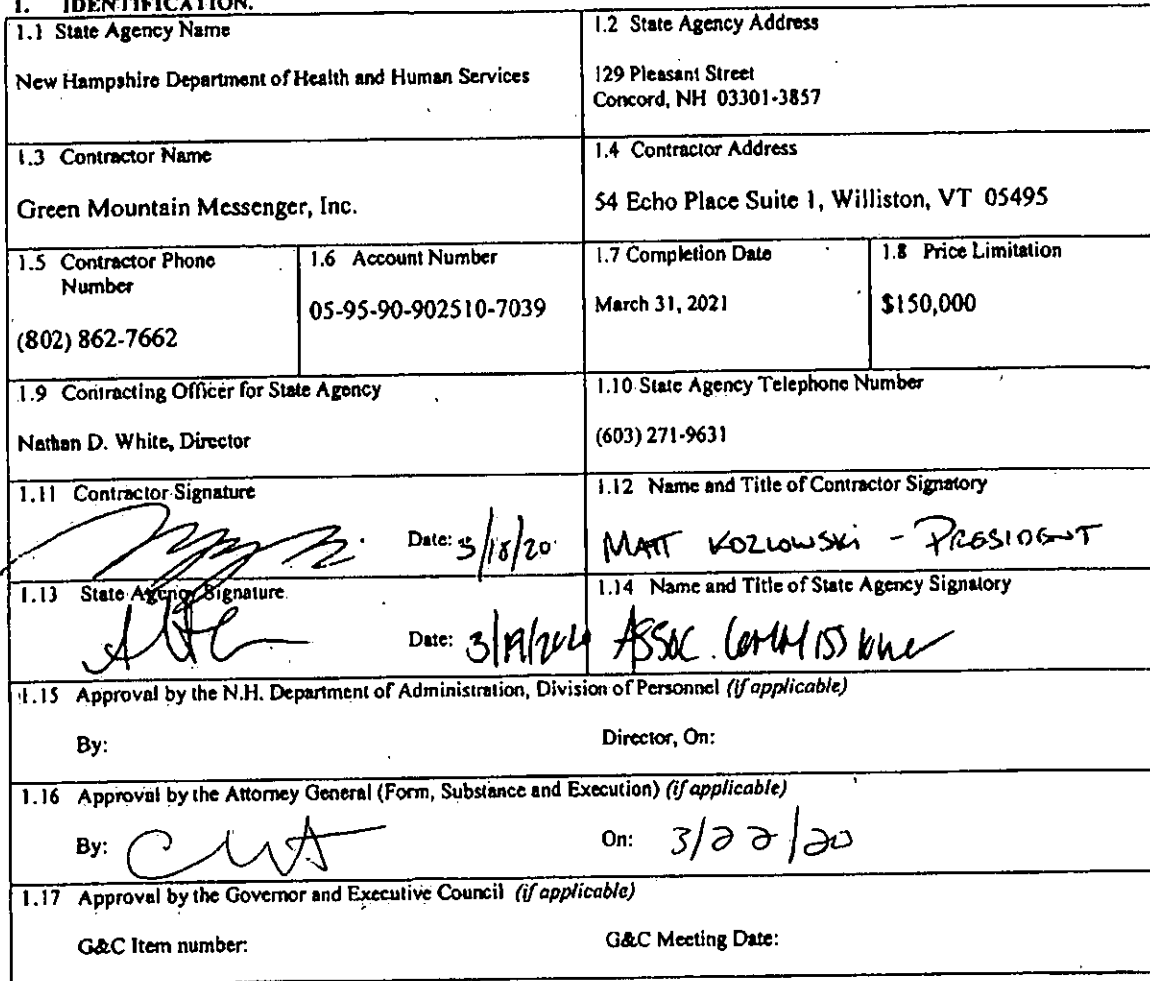 1. IDENTIFICATION.
1.1 State Agency Name
New Hampshire Department of Health and Human Services
1.2 State Agency Address
129 Pleasant Street
Concord, NH 03301-3857
1.3 Contractor Name
Green Mountain Messenger, Inc.
1.4 Contractor Address
54 Echo Place Suite 1, Williston, VT 05495
1.5 Contractor Phone
Number
(802) 862-7662
1.6 Account Number
05-95-90-902510-7039
1.7 Completion Date
March 31, 2021
1.8 Price Limitation
$150,000
1.9 Contracting Officer for State Agency
Nathan D. White, Director
1.10 State Agency Telephone Number
(603) 271-9631
1.11 Contractor Signature
Date: 3/18/20
1.12 Name and Title of Contractor Signatory
MATT KOZLOWSKI - PRESIDENT
1.13 State Agency Signature
Date: 3/19/2020
1.14 Name and Title of State Agency Signatory
ASSOC. COMMISSIONER
1.15 Approval by the N.H. Department of Administration, Division of Personnel (if applicable)
By:
Director, On:
1.16 Approval by the Attorney General (Form, Substance and Execution) (if applicable)
By:
On: 3/22/20
1.17 Approval by the Governor and Executive Council (if applicable)
G&C Item number:
G&C Meeting Date: